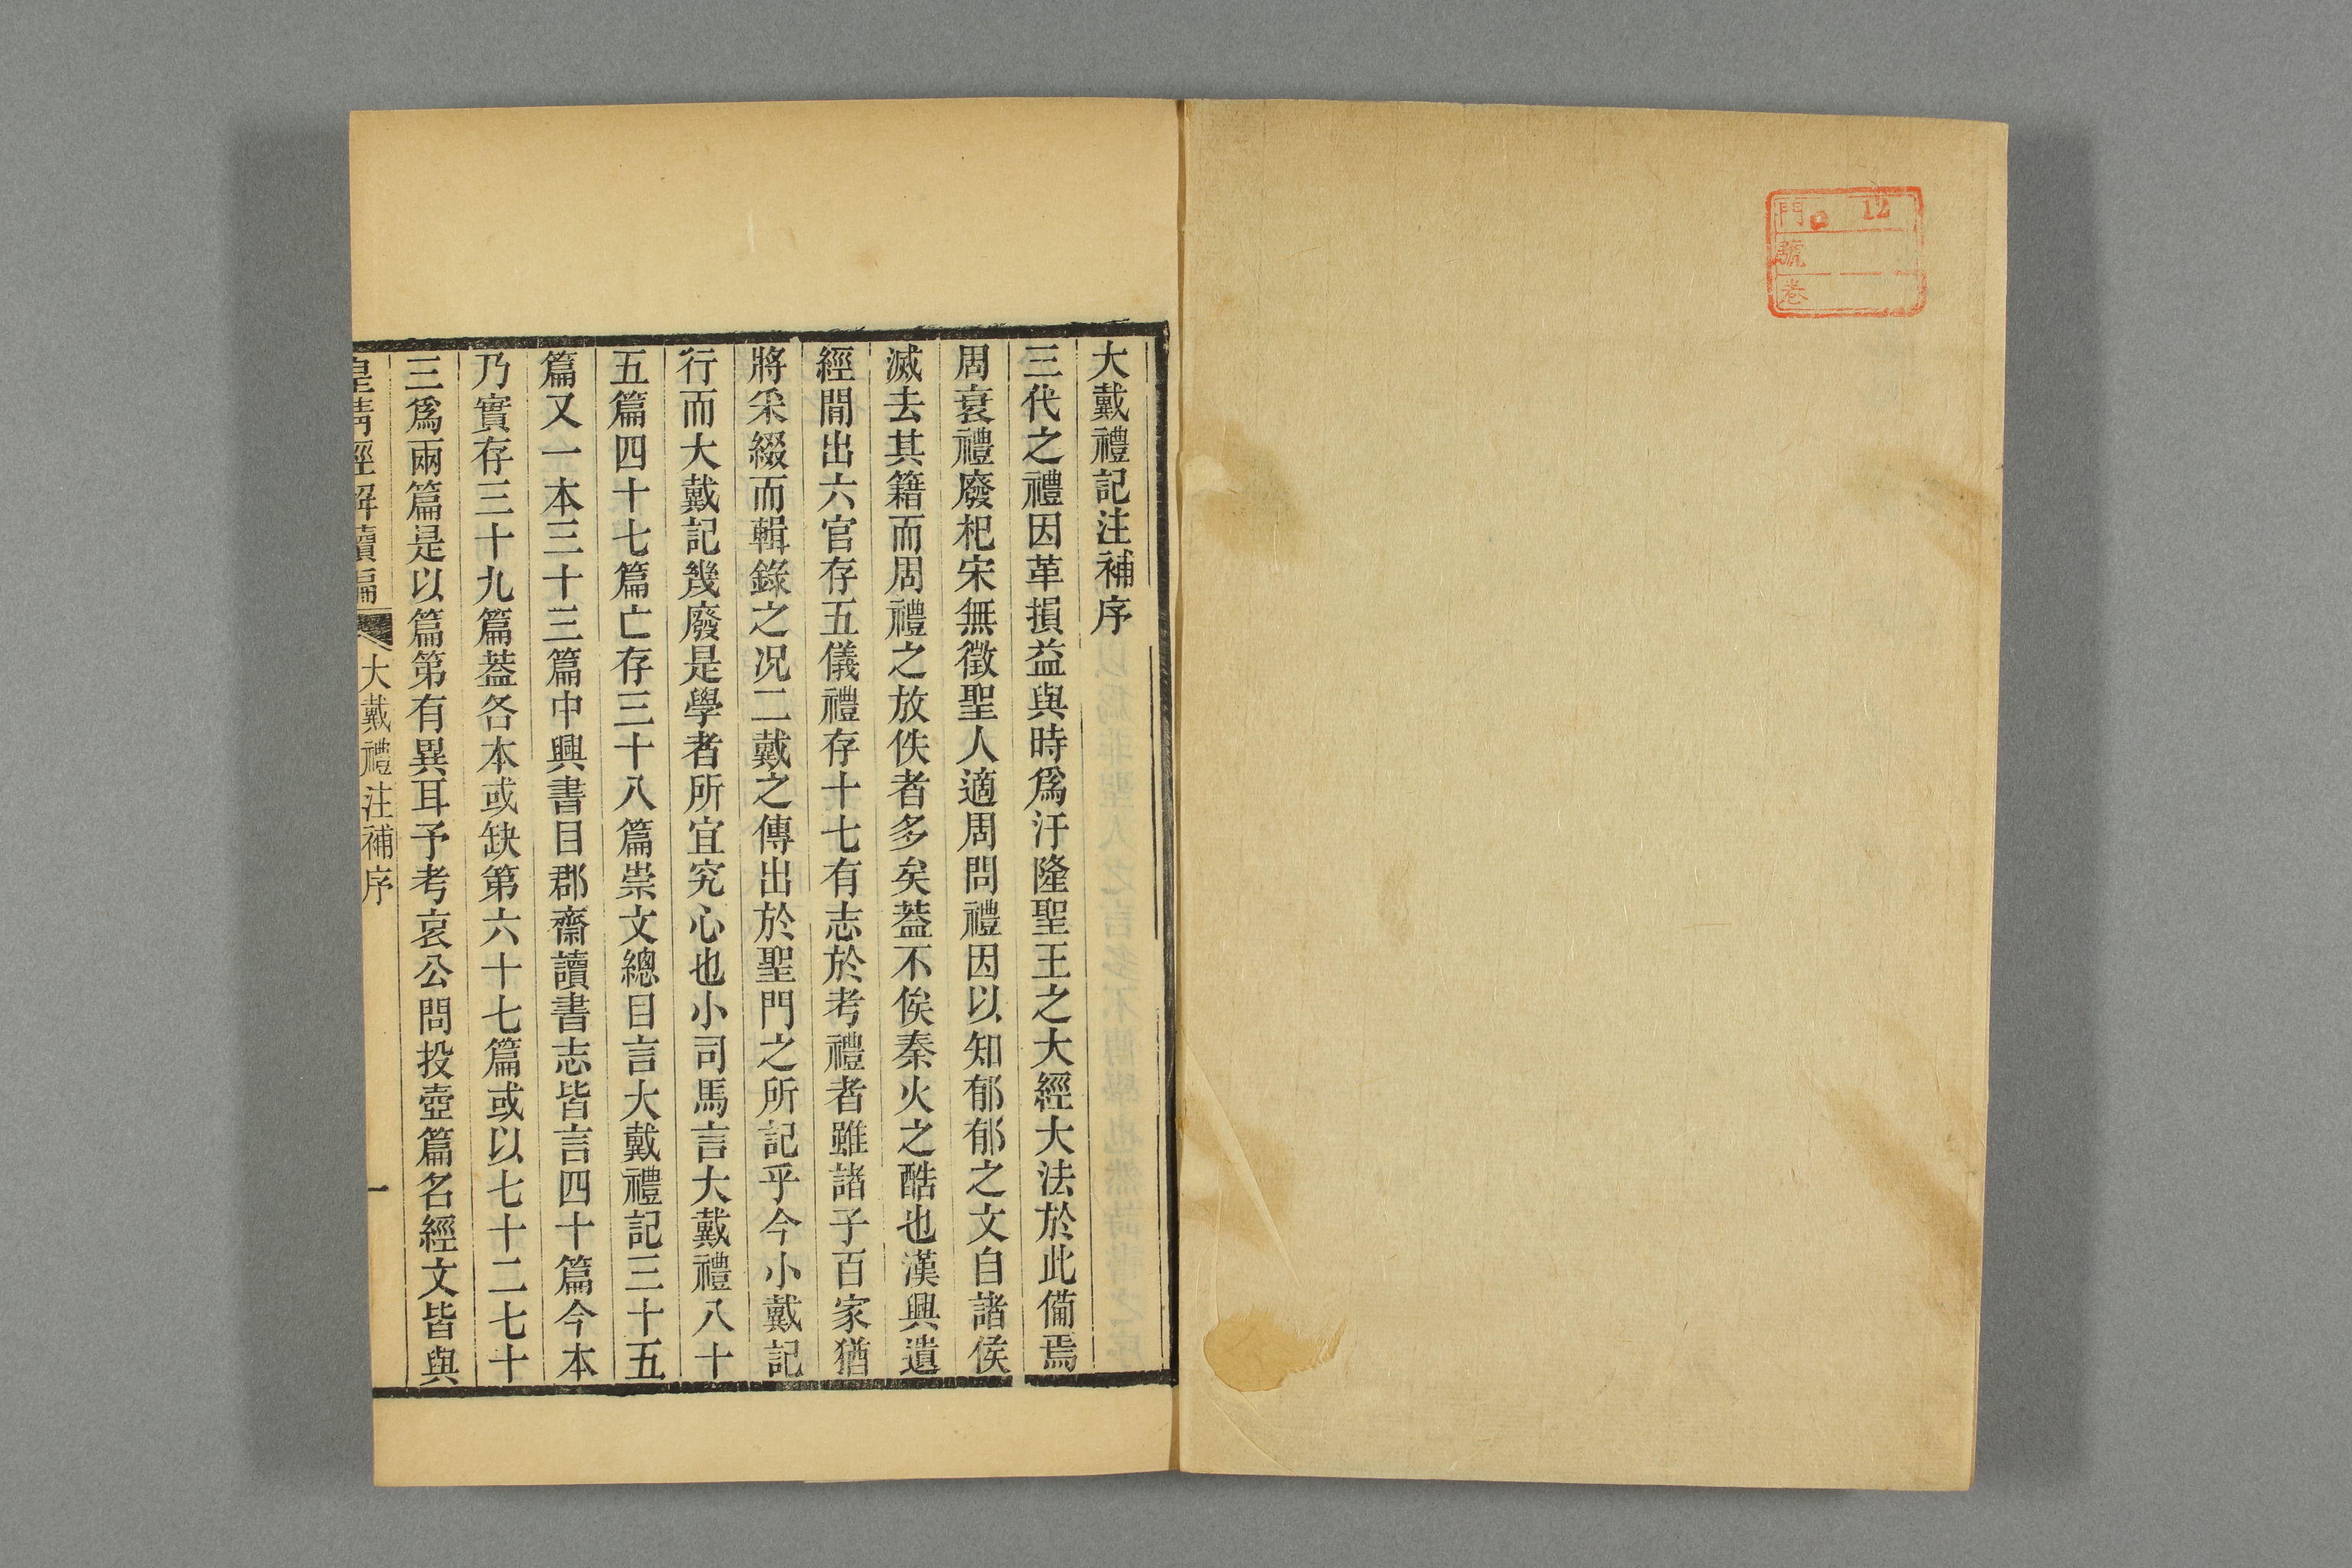 門 12
號
卷
大戴禮記注補序
三代之禮因革損益與時爲汙隆聖王之大經大法於此備焉
周衰禮廢杞宋無徵聖人適周問禮因以知郁郁之文自諸侯
滅去其籍而周禮之放佚者多矣葢不俟秦火之酷也漢興遺
經閒出六官存五儀禮存十七有志於考禮者雖諸子百家猶
將采綴而輯錄之况二戴之傳出於聖門之所記乎今小戴記
行而大戴記幾廢是學者所宜究心也小司馬言大戴禮八十
五篇四十七篇亡存三十八篇崇文總目言大戴禮記三十五
篇又一本三十三篇中興書目郡齋讀書志皆言四十篇今本
乃實存三十九篇葢各本或缺第六十七篇或以七十二七十
三爲兩篇是以篇第有異耳予考哀公問投壺篇名經文皆與
皇清經解續編 大戴禮注補序 一